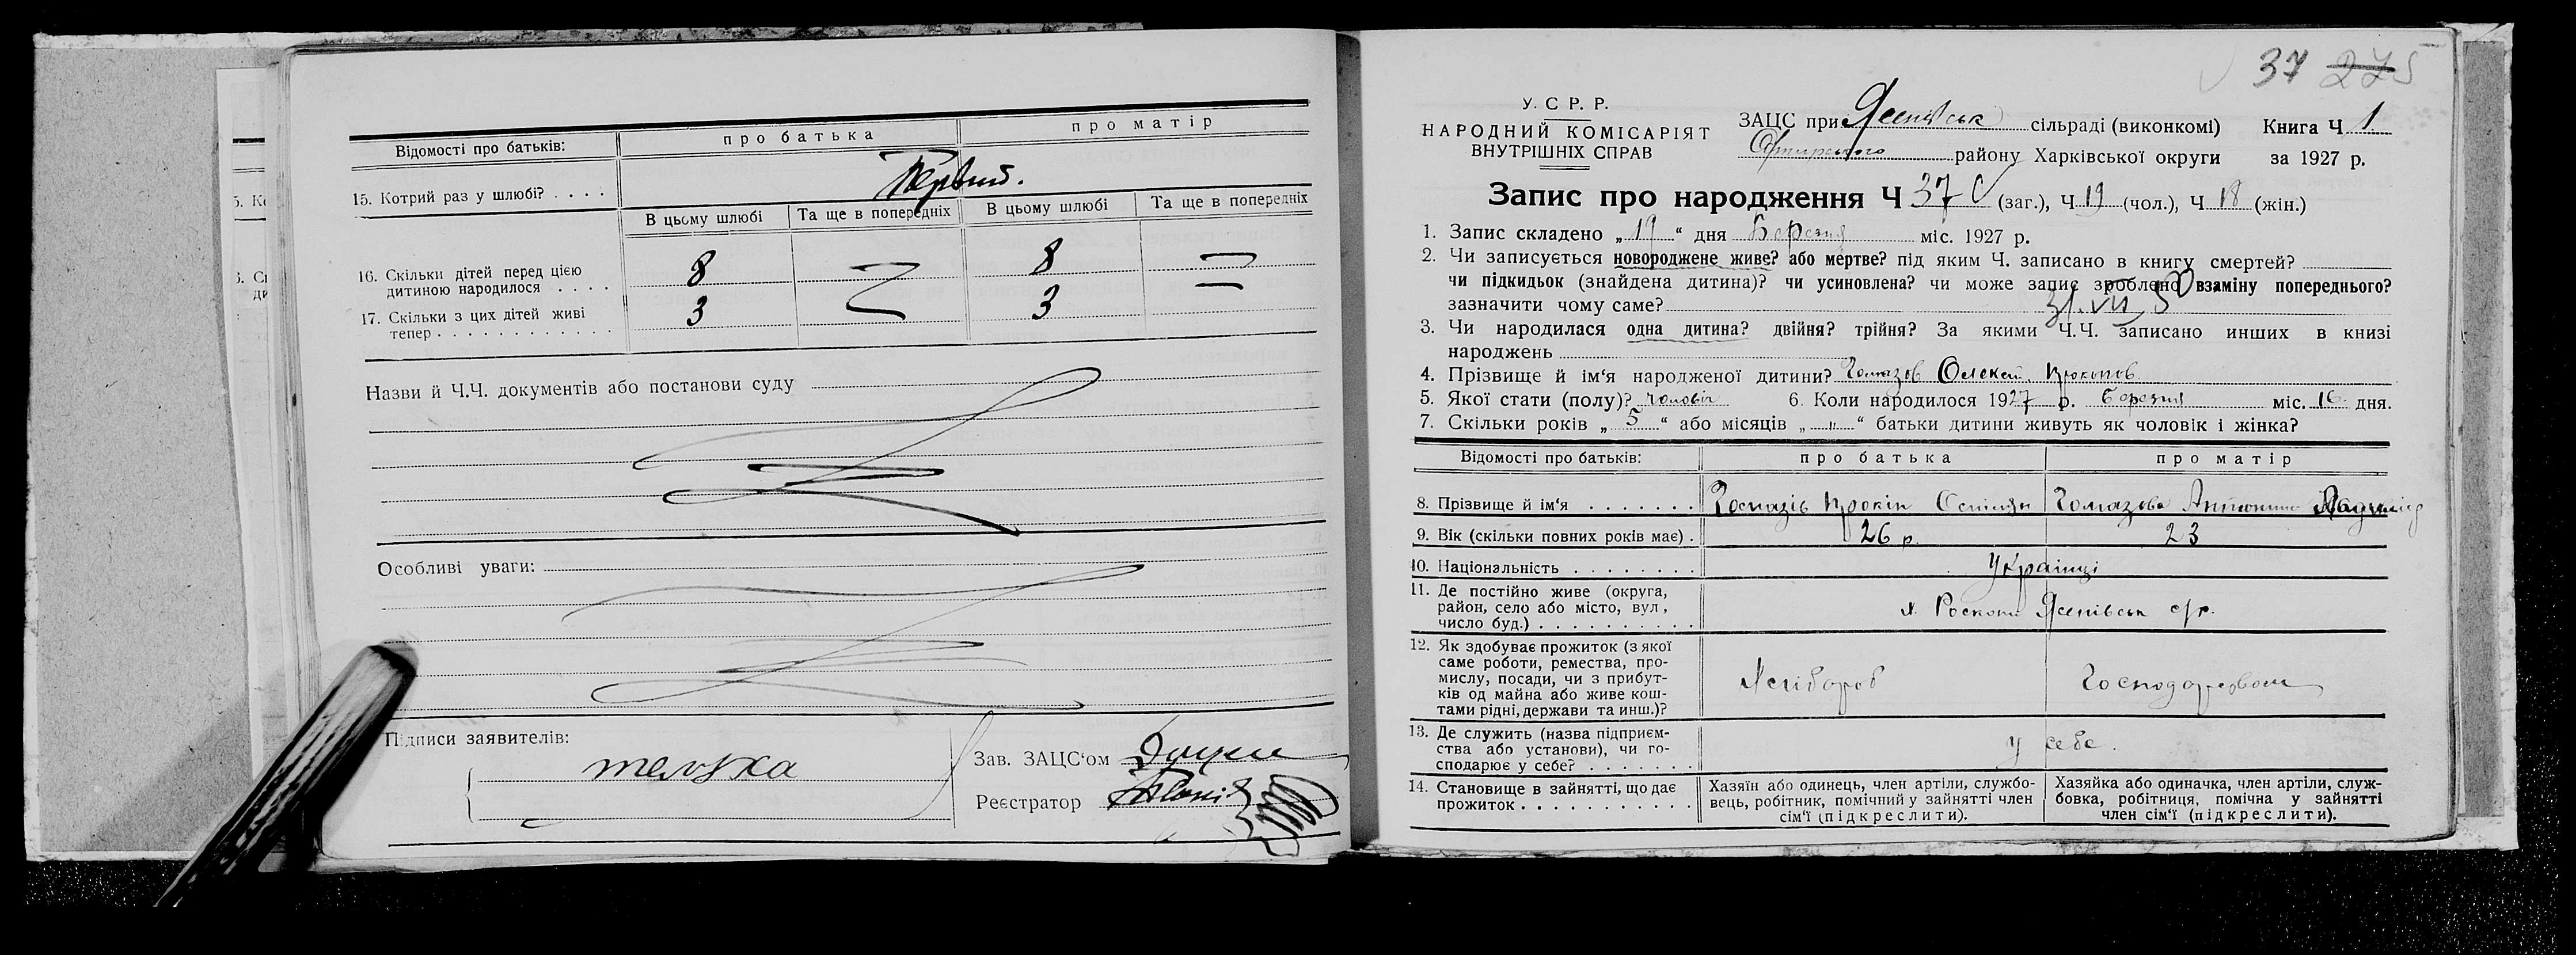 Відомості про батьків: про батька про матір
15. Котрий раз у шлюбі? . . . . Первий.
В цьому шлюбі Та ще в попередніх В цьому шлюбі Та ще в попередніх
16. Скільки дітей перед цією
дитиною народилося . . . . 8 — 8 —
17. Скільки з цих дітей живі
тепер . . . . . . . . . . . . . 3 — 3 —
Назви й Ч.Ч. документів або постанови суду
Особливі уваги:
Підписи заявителів:
Зав. ЗАЦС‘ом
Реєстратор
37 275
У. С Р. Р.
НАРОДНИЙ КОМІСАРІЯТ
ВНУТРІШНІХ СПРАВ
ЗАЦС при Ясенівськ сільраді (виконкомі) Книга Ч 1.
району Харківської округи за 1927 р.
Запис про народження Ч 37 (заг.), Ч 19 (чол.), Ч 18 (жін.)
1. Запис складено „ 19 “ дня Березня міс. 1927 р.
2. Чи записується новороджене живе? або мертве? під яким Ч. записано в книгу смертей?
чи підкидьок (знайдена дитина)? чи усиновлена? чи може запис зроблено взаміну попереднього?
зазначити чому саме?
3. Чи народилася одна дитина? двійня? трійня? За якими Ч.Ч. записано инших в книзі
народжень
4. Прізвище й ім‘я народженої дитини? Олексей
5. Якої стати (полу)? чоловіч 6. Коли народилося 1927 р. березня міс. 16 дня.
7. Скільки років „ 5 “ або місяців „ „ “ батьки дитини живуть як чоловік і жінка?
Відомості про батьків: про батька про матір
8. Прізвище й ім‘я . . . . . . . Прокіп Антонина
9. Вік (скільки повних років має) . 26 р. 23
10. Національність . . . . . . . . Українці
11. Де постійно живе (округа,
район, село або місто, вул,
число буд.) . . . . . . . . . . Ясенівськ с/р.
12. Як здобуває прожиток (з якої
саме роботи, ремества, про-
мислу, посади, чи з прибут-
ків од майна або живе кош-
тами рідні, держави та инш.)? Хлібороб
13. Де служить (назва підприєм-
ства або установи), чи го-
сподарює у себе? . . . . . . . у себе.
14. Становище в зайнятті, що дає
прожиток . . . . . . . . . . .
Хазяїн або одинець, член артіли, службо-
вець, робітник, помічний у зайнятті член
сім‘ї (підкреслити).
Хазяйка або одиначка, член артіли, служ-
бовка, робітниця, помічна у зайнятті
член сім‘ї (підкреслити).